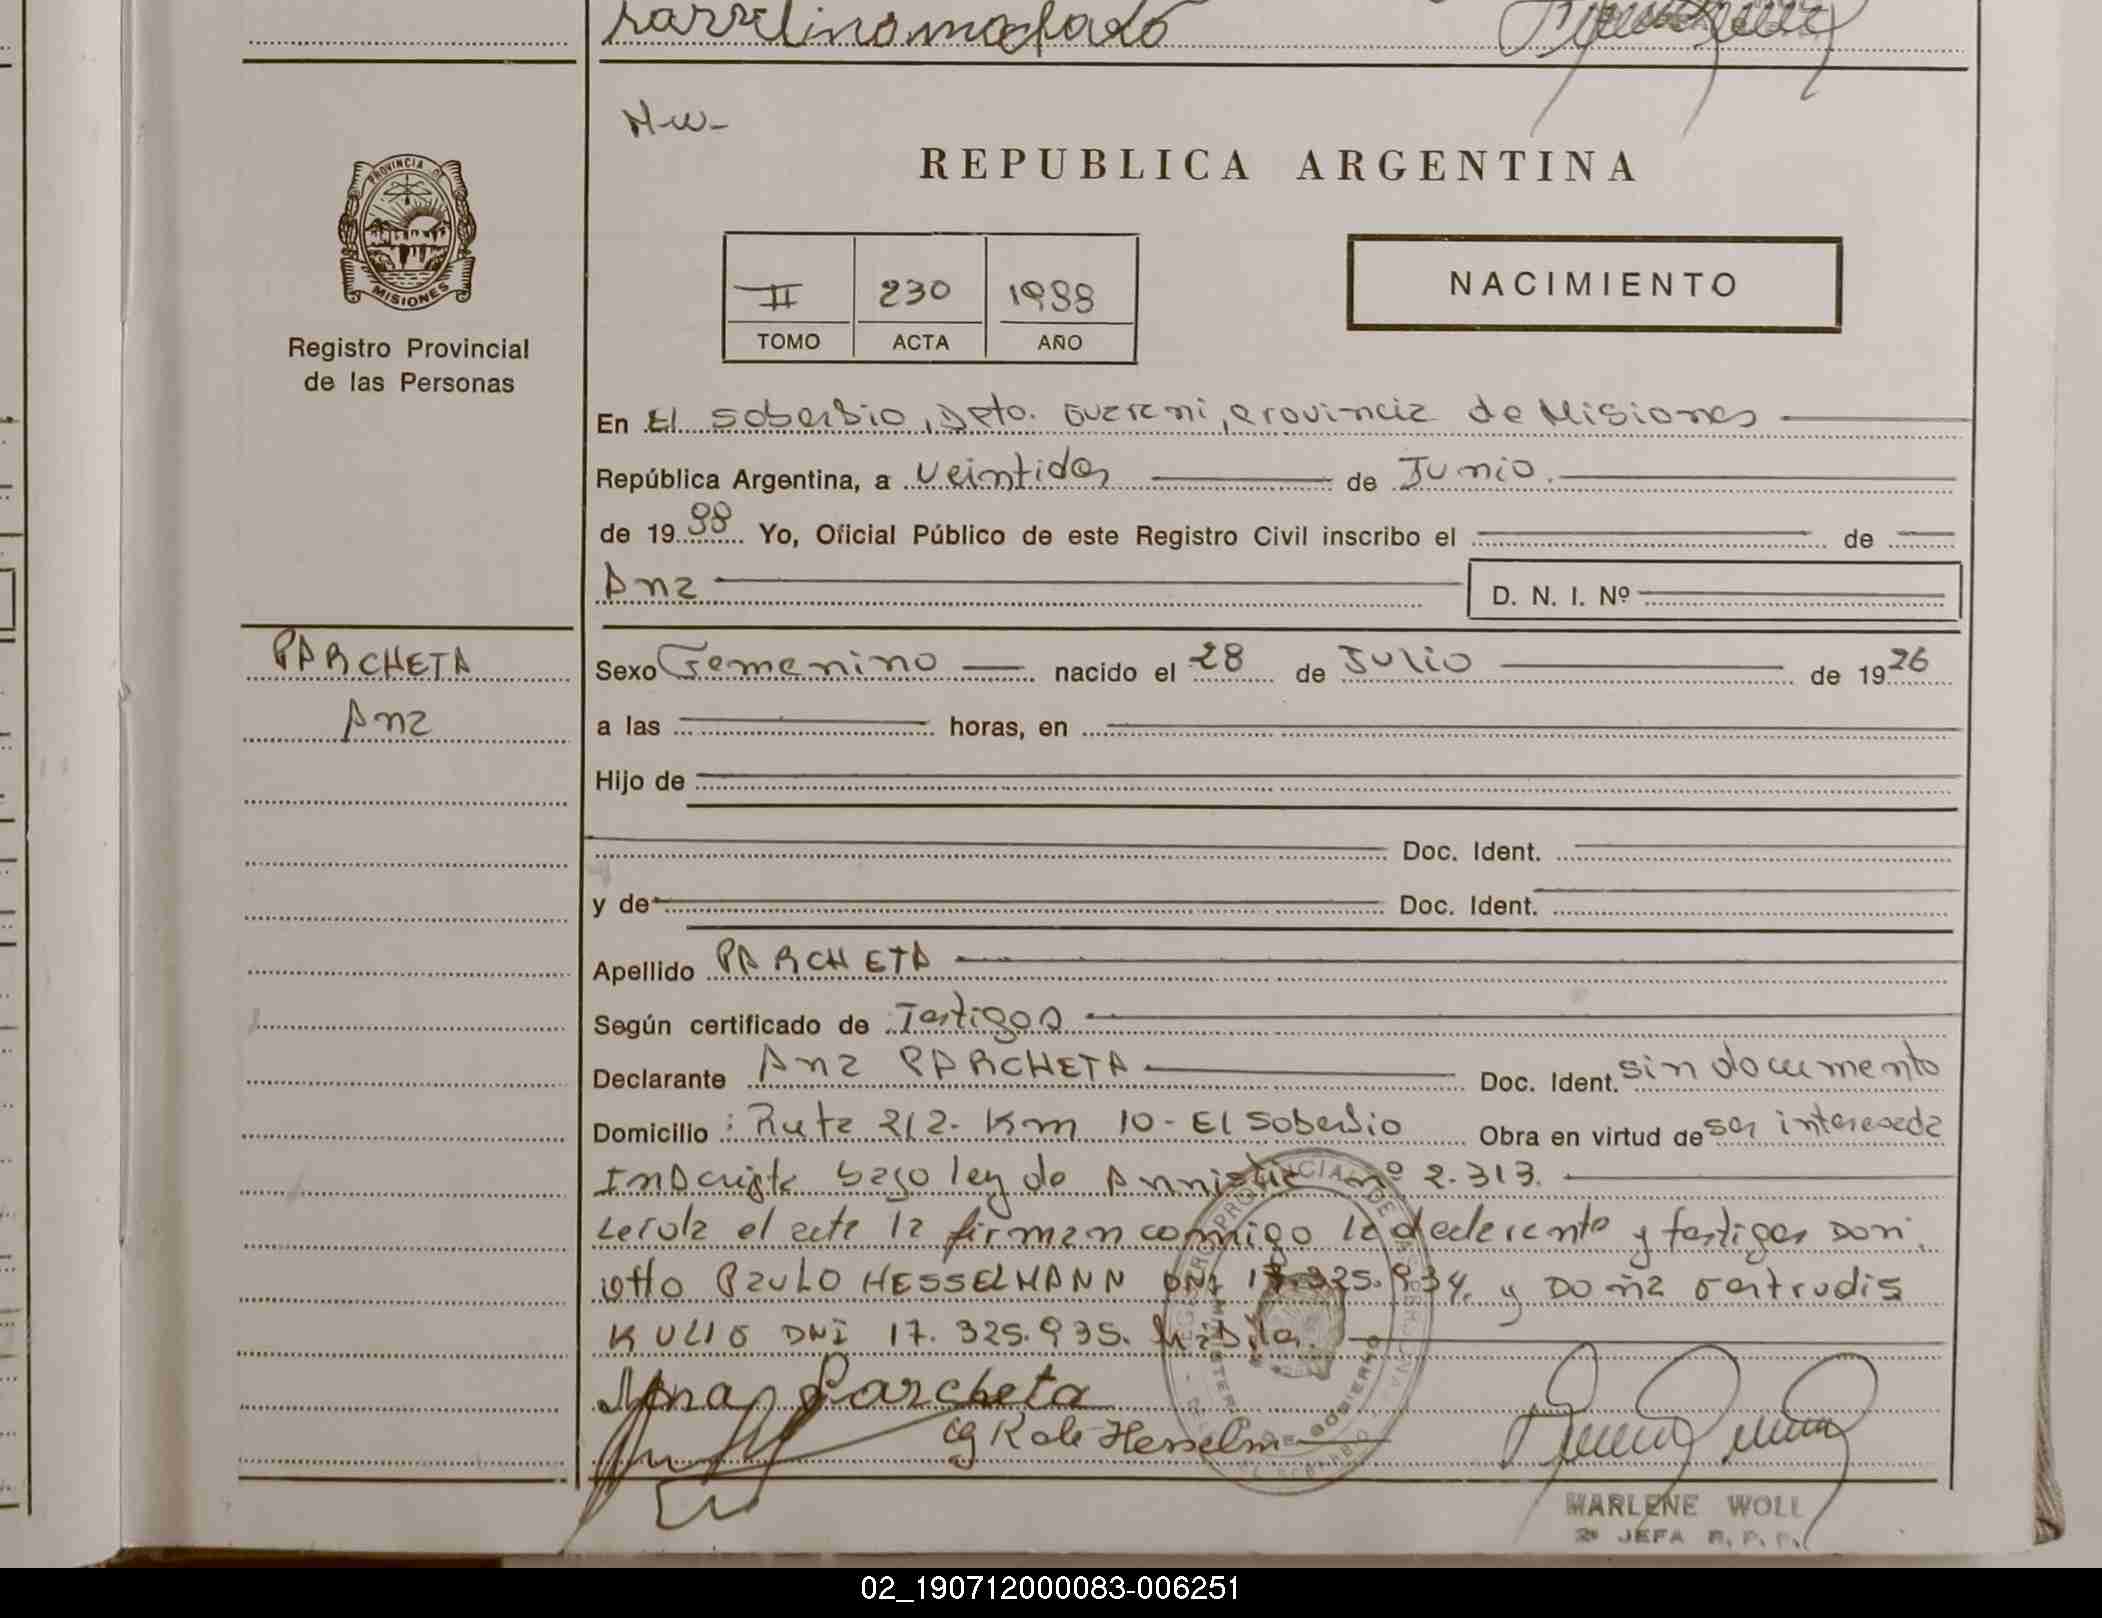 REPUBLICA ARGENTINA
PROVINCIA DE
MISIONES
Registro Provincial
de las Personas
II 230 1988
TOMO ACTA AÑO
NACIMIENTO
En El Soberbio, Dpto. Guarani, Provincia de Misiones
República Argentina, a veintidos de Junio.
de 1988 Yo, Oficial Público de este Registro Civil inscribo el de
Ana D. N. I. Nº
PARCHETA
Ana
Sexo Femenino nacido el 28 de Julio de 1926
a las horas, en
Hijo de
Doc. Ident.
y de Doc. Ident.
Apellido PARCHETA
Según certificado de Testigos
Declarante Ana PARCHETA Doc. Ident. sin documento
Domicilio : Ruta 212- Km 10- El Soberbio Obra en virtud de ser interesada
Inscripta bajo ley de Amnistia nº 2.313.
Leida el acta la firman conmigo la declarante y testigos Don
Otto Paulo HESSELMANN DNI 17.325.934. y Doña Gertrudis
KULIG DNI 17.325.935.
Ana Parcheta
MARLENE WOLL
2ª JEFA R. P. P.
02_190712000083-006251